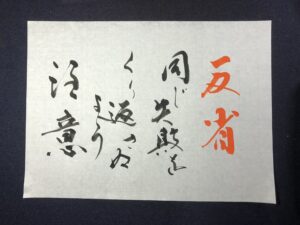 反省
同じ失敗を
くり返さぬ
よう
注意